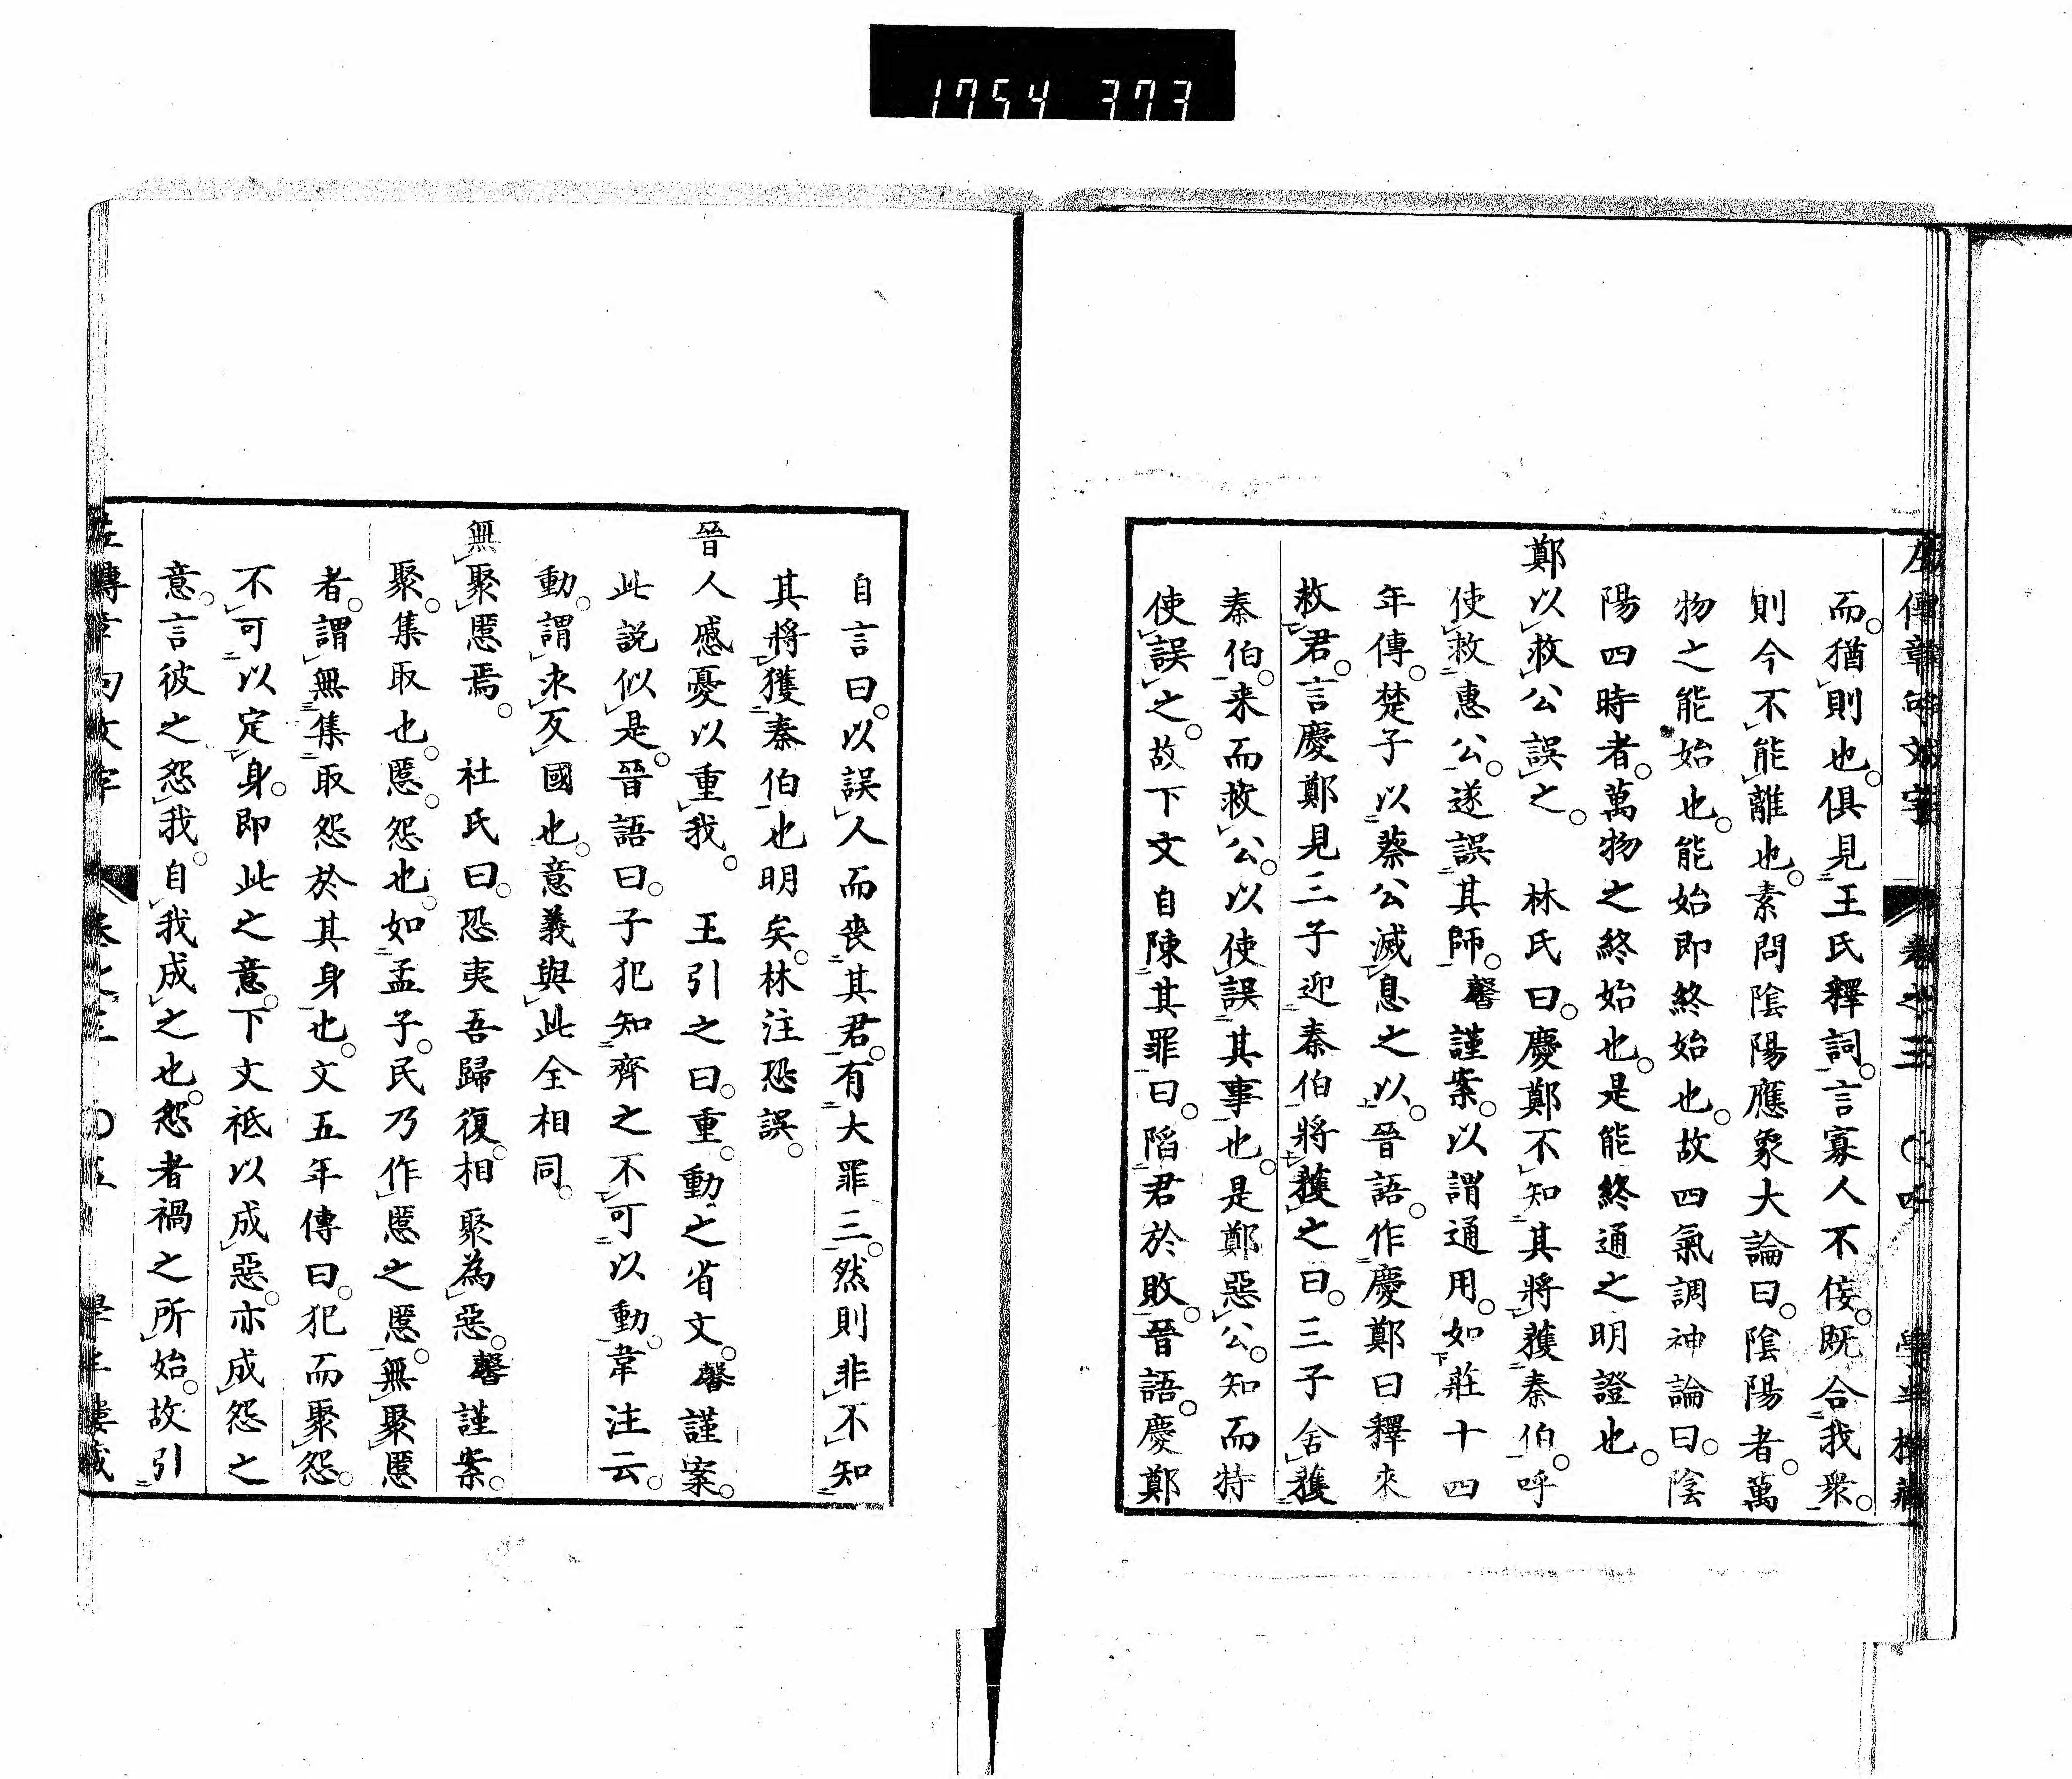 1754 373
左傳章句文字 卷之三 〇四 學半樓藏
而。猶則也。俱見王氏釋詞。言寡人不佞。既合我衆。
則今不能離也。素問陰陽應象大論曰。陰陽者。萬
物之能始也。能始即終始也。故四氣調神論曰。陰
陽四時者。萬物之終始也。是能終通之明證也。
鄭以救公誤之。 林氏曰。慶鄭不知其將獲秦伯。呼
使救惠公。遂誤其師。馨謹案。以謂通用。如莊十四
年傳。楚子以蔡公滅息之以。晉語。作慶鄭曰釋來
救君。言慶鄭見三子迎秦伯將獲之曰。三子舍獲
秦伯。来而救公。以使誤其事也。是鄭惡公。知而特
使誤之。故下文自陳其罪曰。陷君於敗。晉語。慶鄭
自言曰。以誤人而喪其君。有大罪三。然則非不知
其將獲秦伯也明矣。林注恐誤。
晉人慼憂以重我。 王引之曰。重。動之省文。馨謹案。
此説似是。晉語曰。子犯知齊之不可以動。韋注云。
動。謂求反國也。意義與此全相同。
無聚慝焉。 社氏曰。恐夷吾歸復。相聚為惡。馨謹案。
聚。集取也。慝。怨也。如孟子。民乃作慝之慝。無聚慝
者。謂無集取怨於其身也。文五年傳曰。犯而聚怨。
不可以定身。即此之意。下文祗以成惡。亦成怨之
意。言彼之怨我。自我成之也。怨者禍之所始。故引
左傳章句文字 卷之三 〇五 學半樓藏